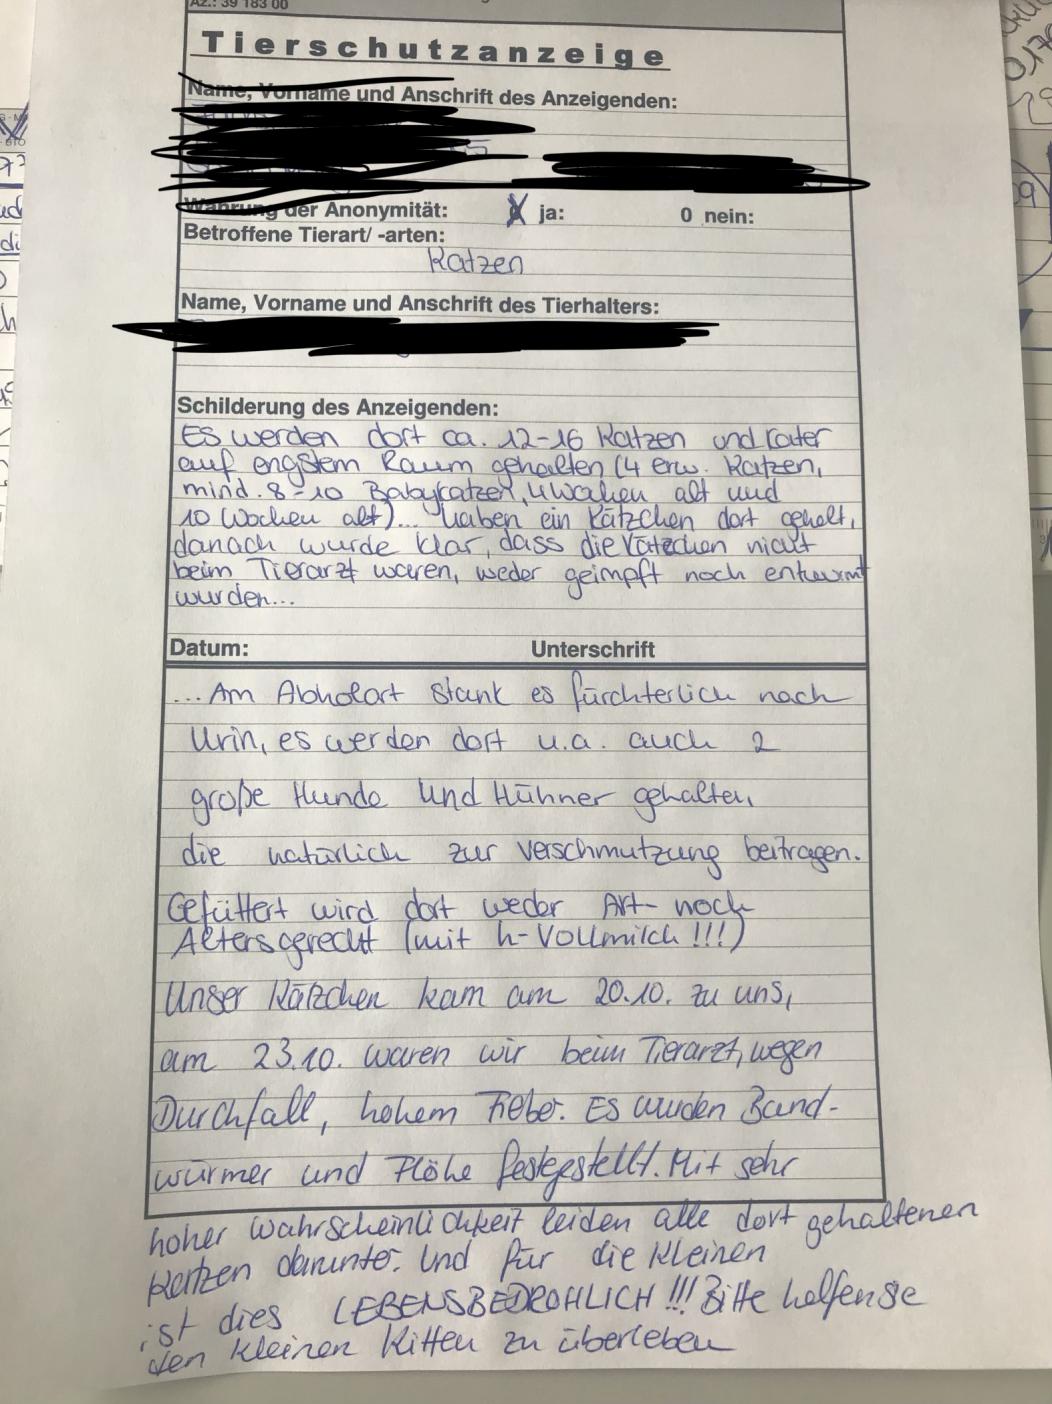 Az.: 39 183 00
Tierschutzanzeige
Name, Vorname und Anschrift des Anzeigenden:
Wahrung der Anonymität: ja: 0 nein:
Betroffene Tierart/ -arten:
Katzen
Name, Vorname und Anschrift des Tierhalters:
Schilderung des Anzeigenden:
Es werden dort ca. 12-16 Katzen und Kater
auf engstem Raum gehalten (4 erw. Katzen,
mind. 8-10 Babykatzen, 4 Wochen alt und
10 Wochen alt)... haben ein Kätzchen dort geholt,
danach wurde klar, dass die Kätzchen nicht
beim Tierarzt waren, weder geimpft noch entwurmt
wurden...
Datum: Unterschrift
...Am Abholort stank es fürchterlich nach
Urin, es werden dort u.a. auch 2
große Hunde und Hühner gehalten,
die natürlich zur Verschmutzung beitragen.
Gefüttert wird dort weder Art- noch
Altersgerecht (mit h-Vollmilch!!!)
Unser Kätzchen kam am 20.10. zu uns,
am 23.10. waren wir beim Tierarzt, wegen
Durchfall, hohem Fieber. Es wurden Band-
würmer und Flöhe festgestellt. Mit sehr
hoher Wahrscheinlichkeit leiden alle dort gehaltenen
Katzen darunter. Und für die Kleinen
ist dies LEBENSBEDROHLICH!!! Bitte helfen sie
den kleinen Kitten zu überleben